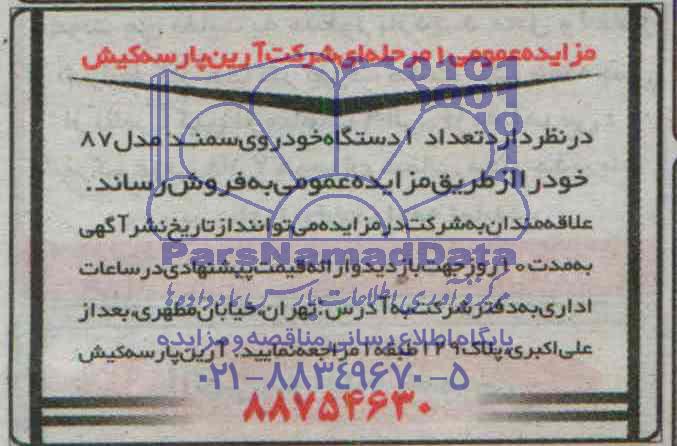 مزایده عمومی 1 مرحله ای شرکت آرین پارسه کیش
در نظر دارد تعداد 1 دستگاه خودروی سمند مدل ۸۷
خود را از طریق مزایده عمومی به فروش رساند.
علاقه مندان به شرکت در مزایده می توانند از تاریخ نشر آگهی
به مدت ۱۰ روز جهت بازدید و ارائه قیمت پیشنهادی در ساعات
اداری به دفتر شرکت به آدرس: تهران، خیابان مطهری، بعد از
علی اکبری، پلاک ۱۴۹ طبقه ۱ مراجعه نمایید. آرین پارسه کیش
۸۸۷۵۴۶۳۰
ParsNamadData
مرکز فرآوری اطلاعات پارس نماد داده ها
پایگاه اطلاع رسانی مناقصه و مزایده
۰۲۱-۸۸۳۴۹۶۷۰-۵